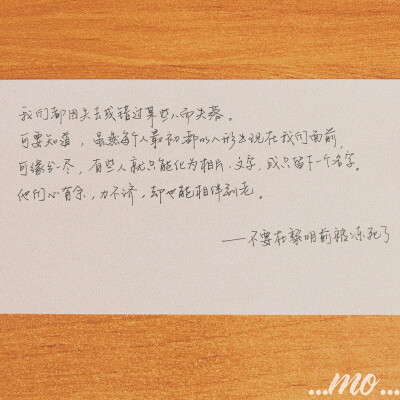 我们都因失去或错过某些人而失落。
可要知道，虽然每个人最初都以人形出现在我们面前，
可缘分一尽，有些人就只能化为相片、文字，或只留下一个名字。
他们心有余，力不济，却也能相伴到老。
——不要在黎明前被冻死了
...mo...